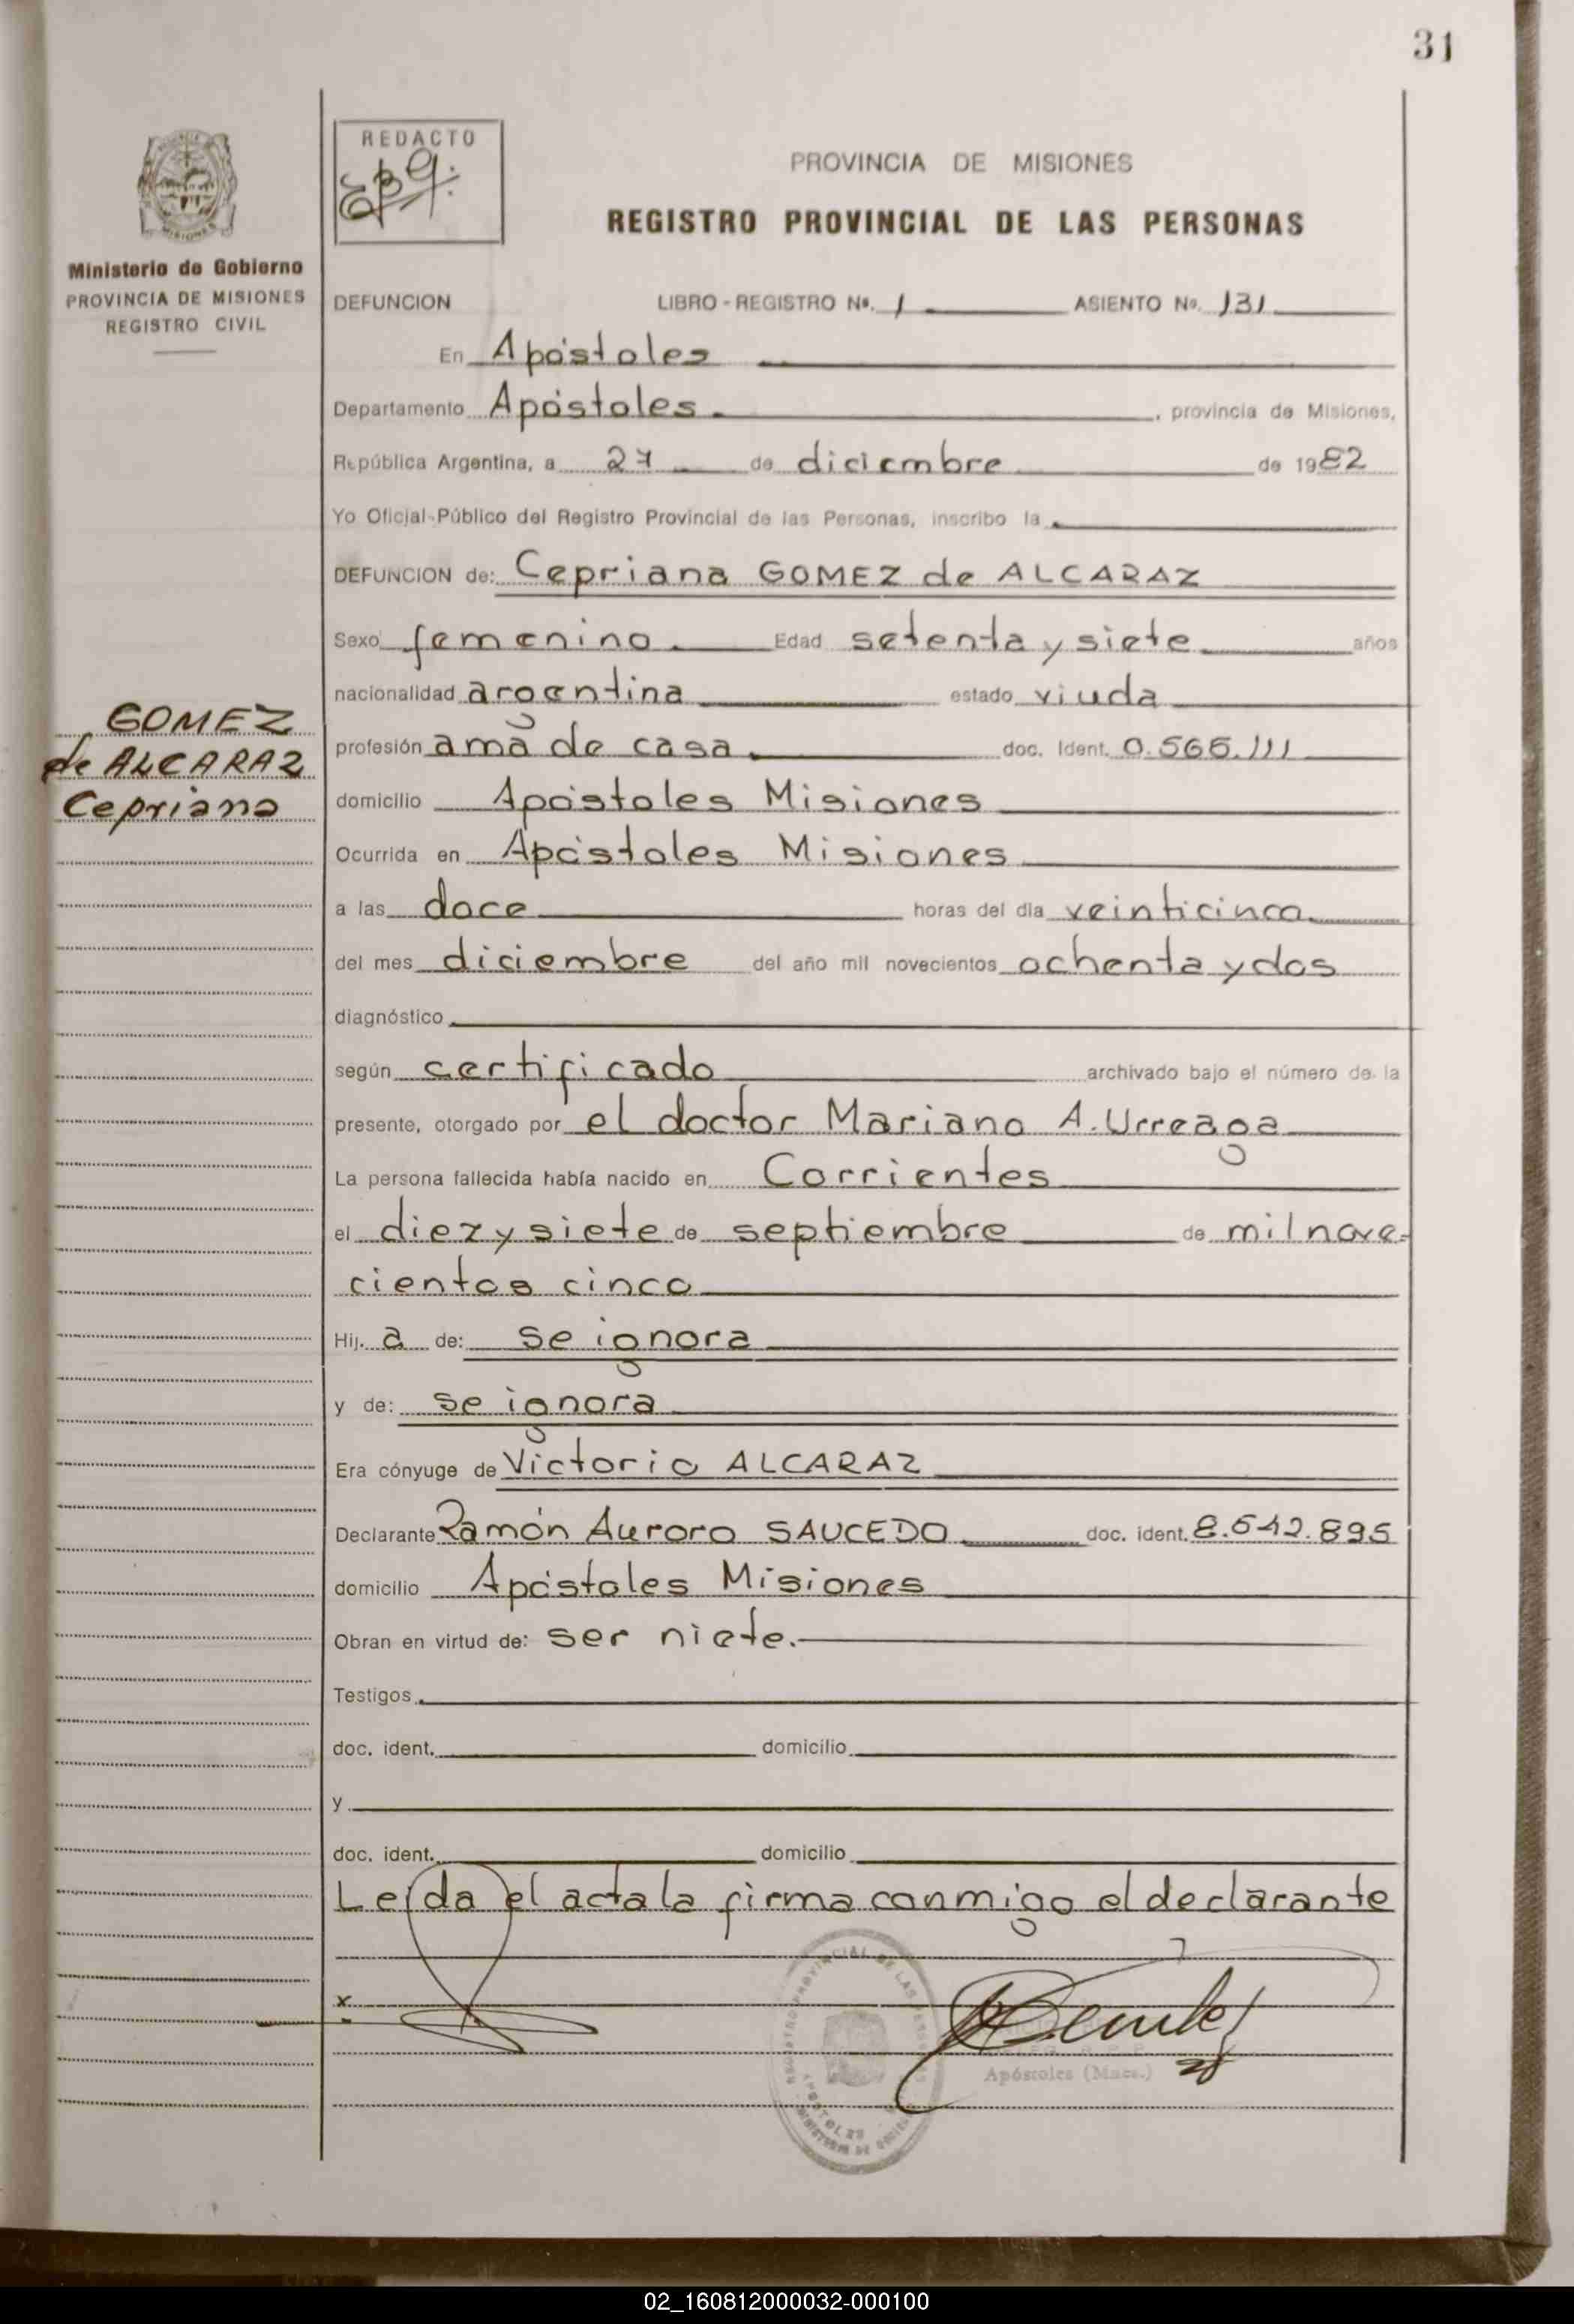 31
REDACTO
PROVINCIA DE MISIONES
REGISTRO PROVINCIAL DE LAS PERSONAS
Ministerio de Gobierno
PROVINCIA DE MISIONES
REGISTRO CIVIL
DEFUNCION LIBRO - REGISTRO Nº. 1 ASIENTO Nº. 131
En Apóstoles
Departamento Apóstoles , provincia de Misiones,
República Argentina, a 27 de diciembre de 1982
Yo Oficial Público del Registro Provincial de las Personas, inscribo la
DEFUNCION de: Cepriana GOMEZ de ALCARAZ
Sexo femenino Edad setenta y siete años
nacionalidad argentina estado viuda
profesión ama de casa doc. Ident. 0.565.111
domicilio Apóstoles Misiones
Ocurrida en Apóstoles Misiones
a las doce horas del dia veinticinco
del mes diciembre del año mil novecientos ochenta y dos
diagnóstico
según certificado archivado bajo el número de la
presente, otorgado por el doctor Mariano A. Urreaga
La persona fallecida había nacido en Corrientes
el diez y siete de septiembre de mil nove-
cientos cinco
Hij. a de: se ignora
y de: se ignora
Era cónyuge de Victorio ALCARAZ
Declarante Ramón Auroro SAUCEDO doc. ident. 8.542.895
domicilio Apóstoles Misiones
Obran en virtud de: ser nieto.
Testigos
doc. ident. domicilio
y
doc. ident. domicilio
Leída el acta la firma conmigo el declarante
x
Apóstoles (Mnes.)
GOMEZ
de ALCARAZ
Cepriana
02_160812000032-000100